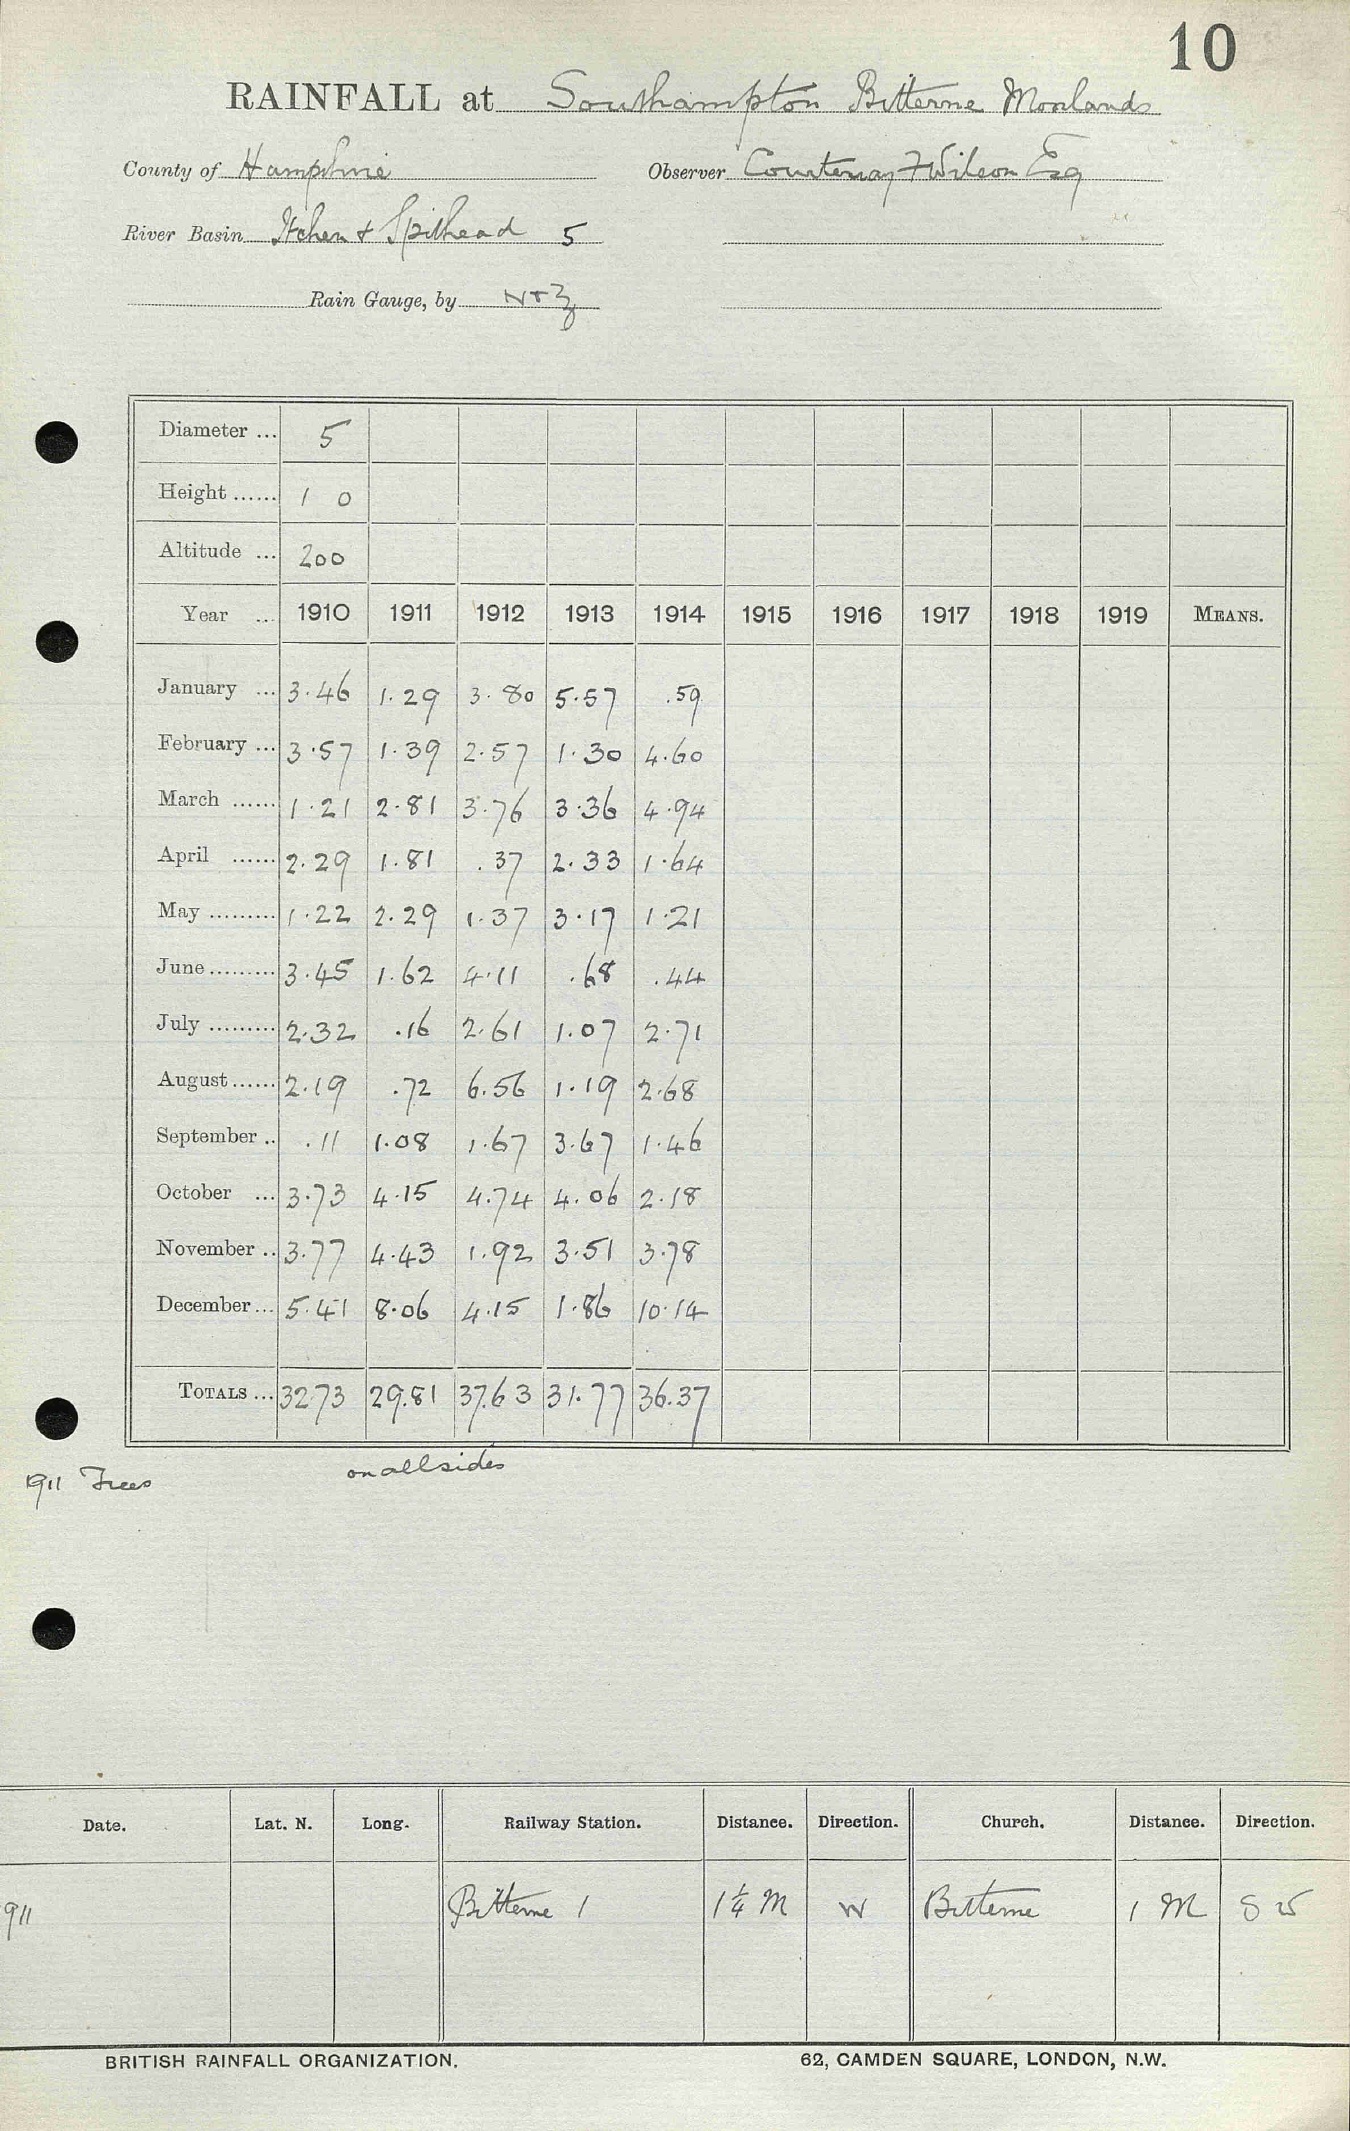 10
RAINFALL at Southampton Bitterne Moorlands
County of Hampshire Observer Courtenay F Wilson Esq
River Basin Itchen & Spithead 5
Rain Gauge, by N+Z
Diameter ... 5
Height ...... 1 0
Altitude ... 200
Year ... 1910 1911 1912 1913 1914 1915 1916 1917 1918 1919 MEANS.
January ... 3.46 1.29 3.80 5.57 .59
February ... 3.57 1.39 2.57 1.30 4.60
March ...... 1.21 2.81 3.76 3.36 4.94
April ...... 2.29 1.81 .37 2.33 1.64
May ......... 1.22 2.29 1.37 3.17 1.21
June ......... 3.45 1.62 4.11 .68 .44
July ......... 2.32 .16 2.61 1.07 2.71
August ...... 2.19 .72 6.56 1.19 2.68
September .. .11 1.08 1.67 3.67 1.46
October ... 3.73 4.15 4.74 4.06 2.18
November .. 3.77 4.43 1.92 3.51 3.78
December ... 5.41 8.06 4.15 1.86 10.14
TOTALS ... 32.73 29.81 37.63 31.77 36.37
1911 Trees on all sides
Date. Lat. N. Long. Railway Station. Distance. Direction. Church. Distance. Direction.
911 Bitterne 1 1¼ M W Bitterne 1 M S W
BRITISH RAINFALL ORGANIZATION. 62, CAMDEN SQUARE, LONDON, N.W.